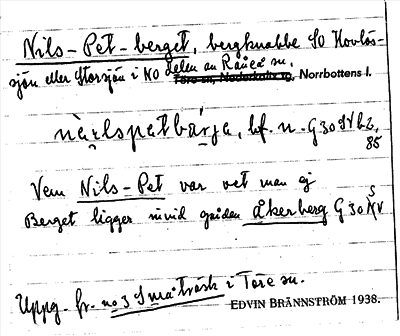 Nils-Pet-berget, bergknabbe SO Hovlös-
sjön eller Storsjön i NO delen av Råneå sn.
Töre sn, Nederkalix tg, Norrbottens l.
nàɛ̣lspɛtbárja, bf. n. G 30 SV b 2,
85
Vem Nils-Pet var vet man ej
Berget ligger invid gården Åkerberg G 30 SV
Uppg. fr. no 3 Småträsk i Töre sn.
EDVIN BRÄNNSTRÖM 1938.